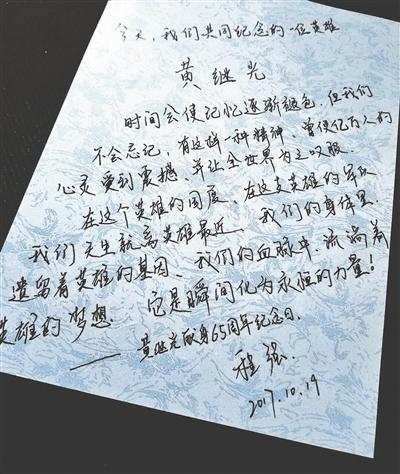 今天，我们共同纪念的一位英雄
黄继光
时间会使记忆逐渐褪色，但我们
不会忘记，有这样一种精神，曾使亿万人的
心灵受到震撼，并让全世界为之叹服。
在这个英雄的国度，在这支英雄的军队
我们天生就离英雄最近，我们的身体里
遗留着英雄的基因，我们的血脉中，流淌着
英雄的梦想。它是瞬间化为永恒的力量！
——黄继光献身65周年纪念日。
程强.
2017.10.19